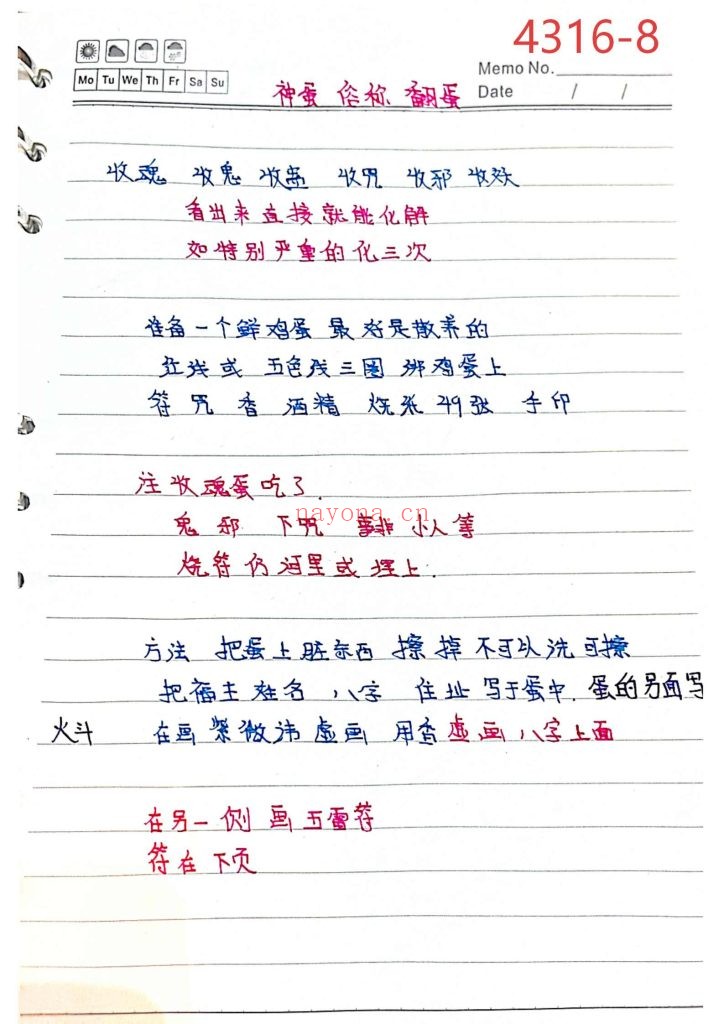 4316-8
Mo Tu We Th Fr Sa Su
Memo No.
Date / /
神蛋 俗称 翻蛋
收魂 收鬼 收蛊 收咒 收邪 收妖
看出来直接就能化解
如特别严重的化三次
准备一个鲜鸡蛋 最好是散养的
红线或 五色线三圈 绑鸡蛋上
符 咒 香 酒精 烧纸 49张 手印
注 收魂蛋吃了.
nayona.cn
鬼 邪 下咒 小人等
烧符仍河里或埋上.
方法 把蛋上脏东西 擦掉 不可以洗 可擦
把福主 姓名 八字 住址 写于蛋中. 蛋的另面写
火斗 在画 紫微讳 虚画 用香虚画 八字上面
在另一侧 画五雷符
符在下页